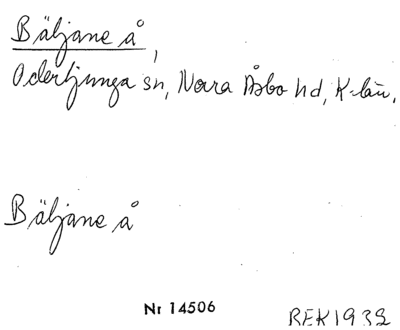 Bäljane å,
Oderljunga sn, Norra Åsbo hd, K-län.
Bäljane å
Nr 14506
REK1932